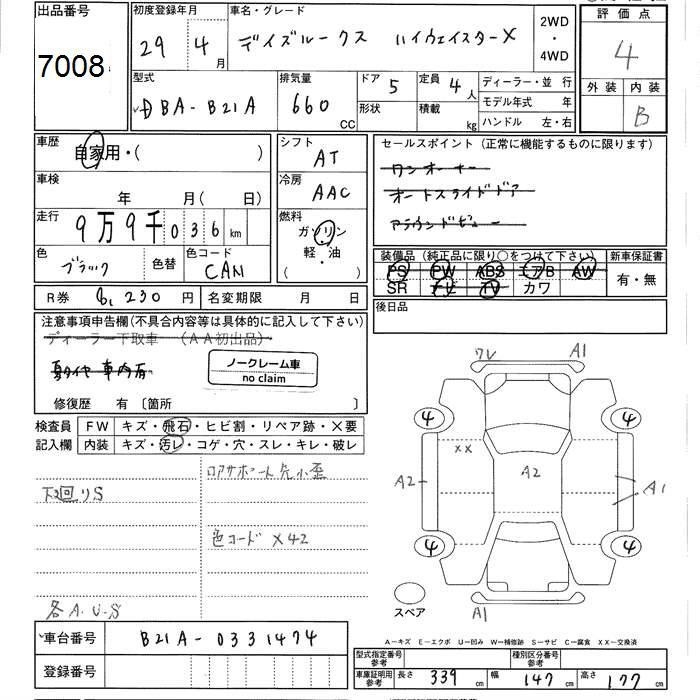 出品番号
7008
初度登録年月
29年 4月
車名・グレード
デイズルークス ハイウェイスターX
2WD
・
4WD
評価点
4
外装 内装
B
型式
DBA-B21A
排気量
660 CC
ドア 5
形状
定員 4人
積載 kg
ディーラー・並行
モデル年式 年
ハンドル 左・右
車歴
自家用・( )
シフト
AT
セールスポイント(正常に機能するものに限ります)
ワンオーナー
オートスライドドア
アラウンドビュー
車検
年 月(日)
冷房
AAC
走行
9万9千036km
燃料
ガソリン
軽・油
( )
色
ブラック
色替
色コード
CAN
装備品(純正品に限り○をつけて下さい)
PS PW ABS エアB AW
SR ナビ TV カワ
新車保証書
有・無
R券 8,230円
名変期限 月 日
後日品
注意事項申告欄(不具合内容等は具体的に記入して下さい)
ディーラー下取車 (AA初出品)
夏タイヤ車内有
ノークレーム車
no claim
修復歴 有 〔箇所 〕
検査員
記入欄
FW キズ・飛石・ヒビ割・リペア跡・×要
内装 キズ・汚レ・コゲ・穴・スレ・キレ・破レ
ロアサポート先小歪
下廻りS
色コード X42
各A.U.S
ワレ
A1
4
4
XX
A2
A2
A1
4
4
A1
スペア
A-キズ E-エクボ U-凹み W-補修跡 S-サビ C-腐食 XX-交換済
車台番号
B21A-0331474
登録番号
型式指定番号
参考
種別区分番号
参考
車庫証明用
参考
長さ 339cm
幅 147cm
高さ 177cm